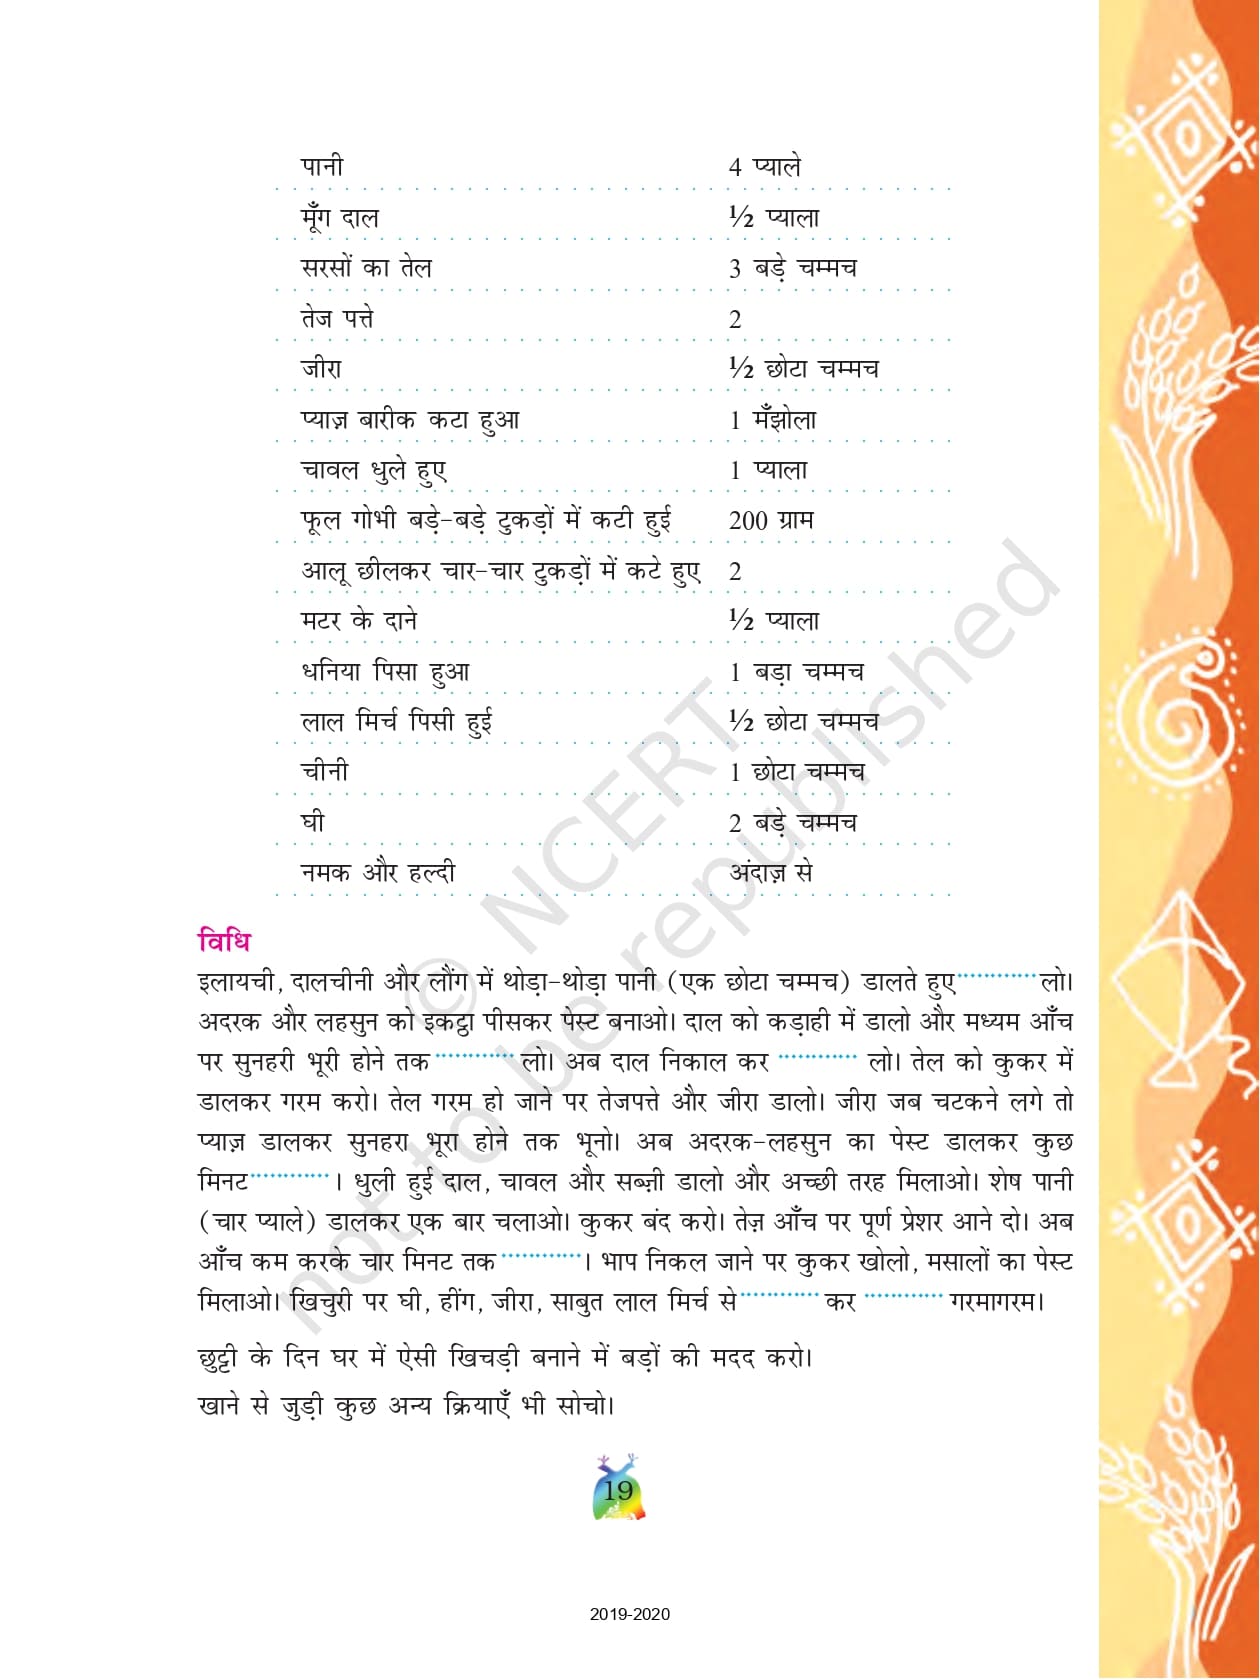 पानी 4 प्याले
मूँग दाल ½ प्याला
सरसों का तेल 3 बड़े चम्मच
तेज पत्ते 2
जीरा ½ छोटा चम्मच
प्याज़ बारीक कटा हुआ 1 मँझोला
चावल धुले हुए 1 प्याला
फूल गोभी बड़े-बड़े टुकड़ों में कटी हुई 200 ग्राम
आलू छीलकर चार-चार टुकड़ों में कटे हुए 2
मटर के दाने ½ प्याला
धनिया पिसा हुआ 1 बड़ा चम्मच
लाल मिर्च पिसी हुई ½ छोटा चम्मच
चीनी 1 छोटा चम्मच
घी 2 बड़े चम्मच
नमक और हल्दी अंदाज़ से
विधि
इलायची, दालचीनी और लौंग में थोड़ा-थोड़ा पानी (एक छोटा चम्मच) डालते हुए ............ लो।
अदरक और लहसुन को इकट्ठा पीसकर पेस्ट बनाओ। दाल को कड़ाही में डालो और मध्यम आँच
पर सुनहरी भूरी होने तक ............ लो। अब दाल निकाल कर ............ लो। तेल को कुकर में
डालकर गरम करो। तेल गरम हो जाने पर तेजपत्ते और जीरा डालो। जीरा जब चटकने लगे तो
प्याज़ डालकर सुनहरा भूरा होने तक भूनो। अब अदरक-लहसुन का पेस्ट डालकर कुछ
मिनट ............ । धुली हुई दाल, चावल और सब्ज़ी डालो और अच्छी तरह मिलाओ। शेष पानी
(चार प्याले) डालकर एक बार चलाओ। कुकर बंद करो। तेज़ आँच पर पूर्ण प्रेशर आने दो। अब
आँच कम करके चार मिनट तक ............ । भाप निकल जाने पर कुकर खोलो, मसालों का पेस्ट
मिलाओ। खिचुरी पर घी, हींग, जीरा, साबुत लाल मिर्च से ............ कर ............ गरमागरम।
छुट्टी के दिन घर में ऐसी खिचड़ी बनाने में बड़ों की मदद करो।
खाने से जुड़ी कुछ अन्य क्रियाएँ भी सोचो।
© NCERT
not to be republished
19
2019-2020